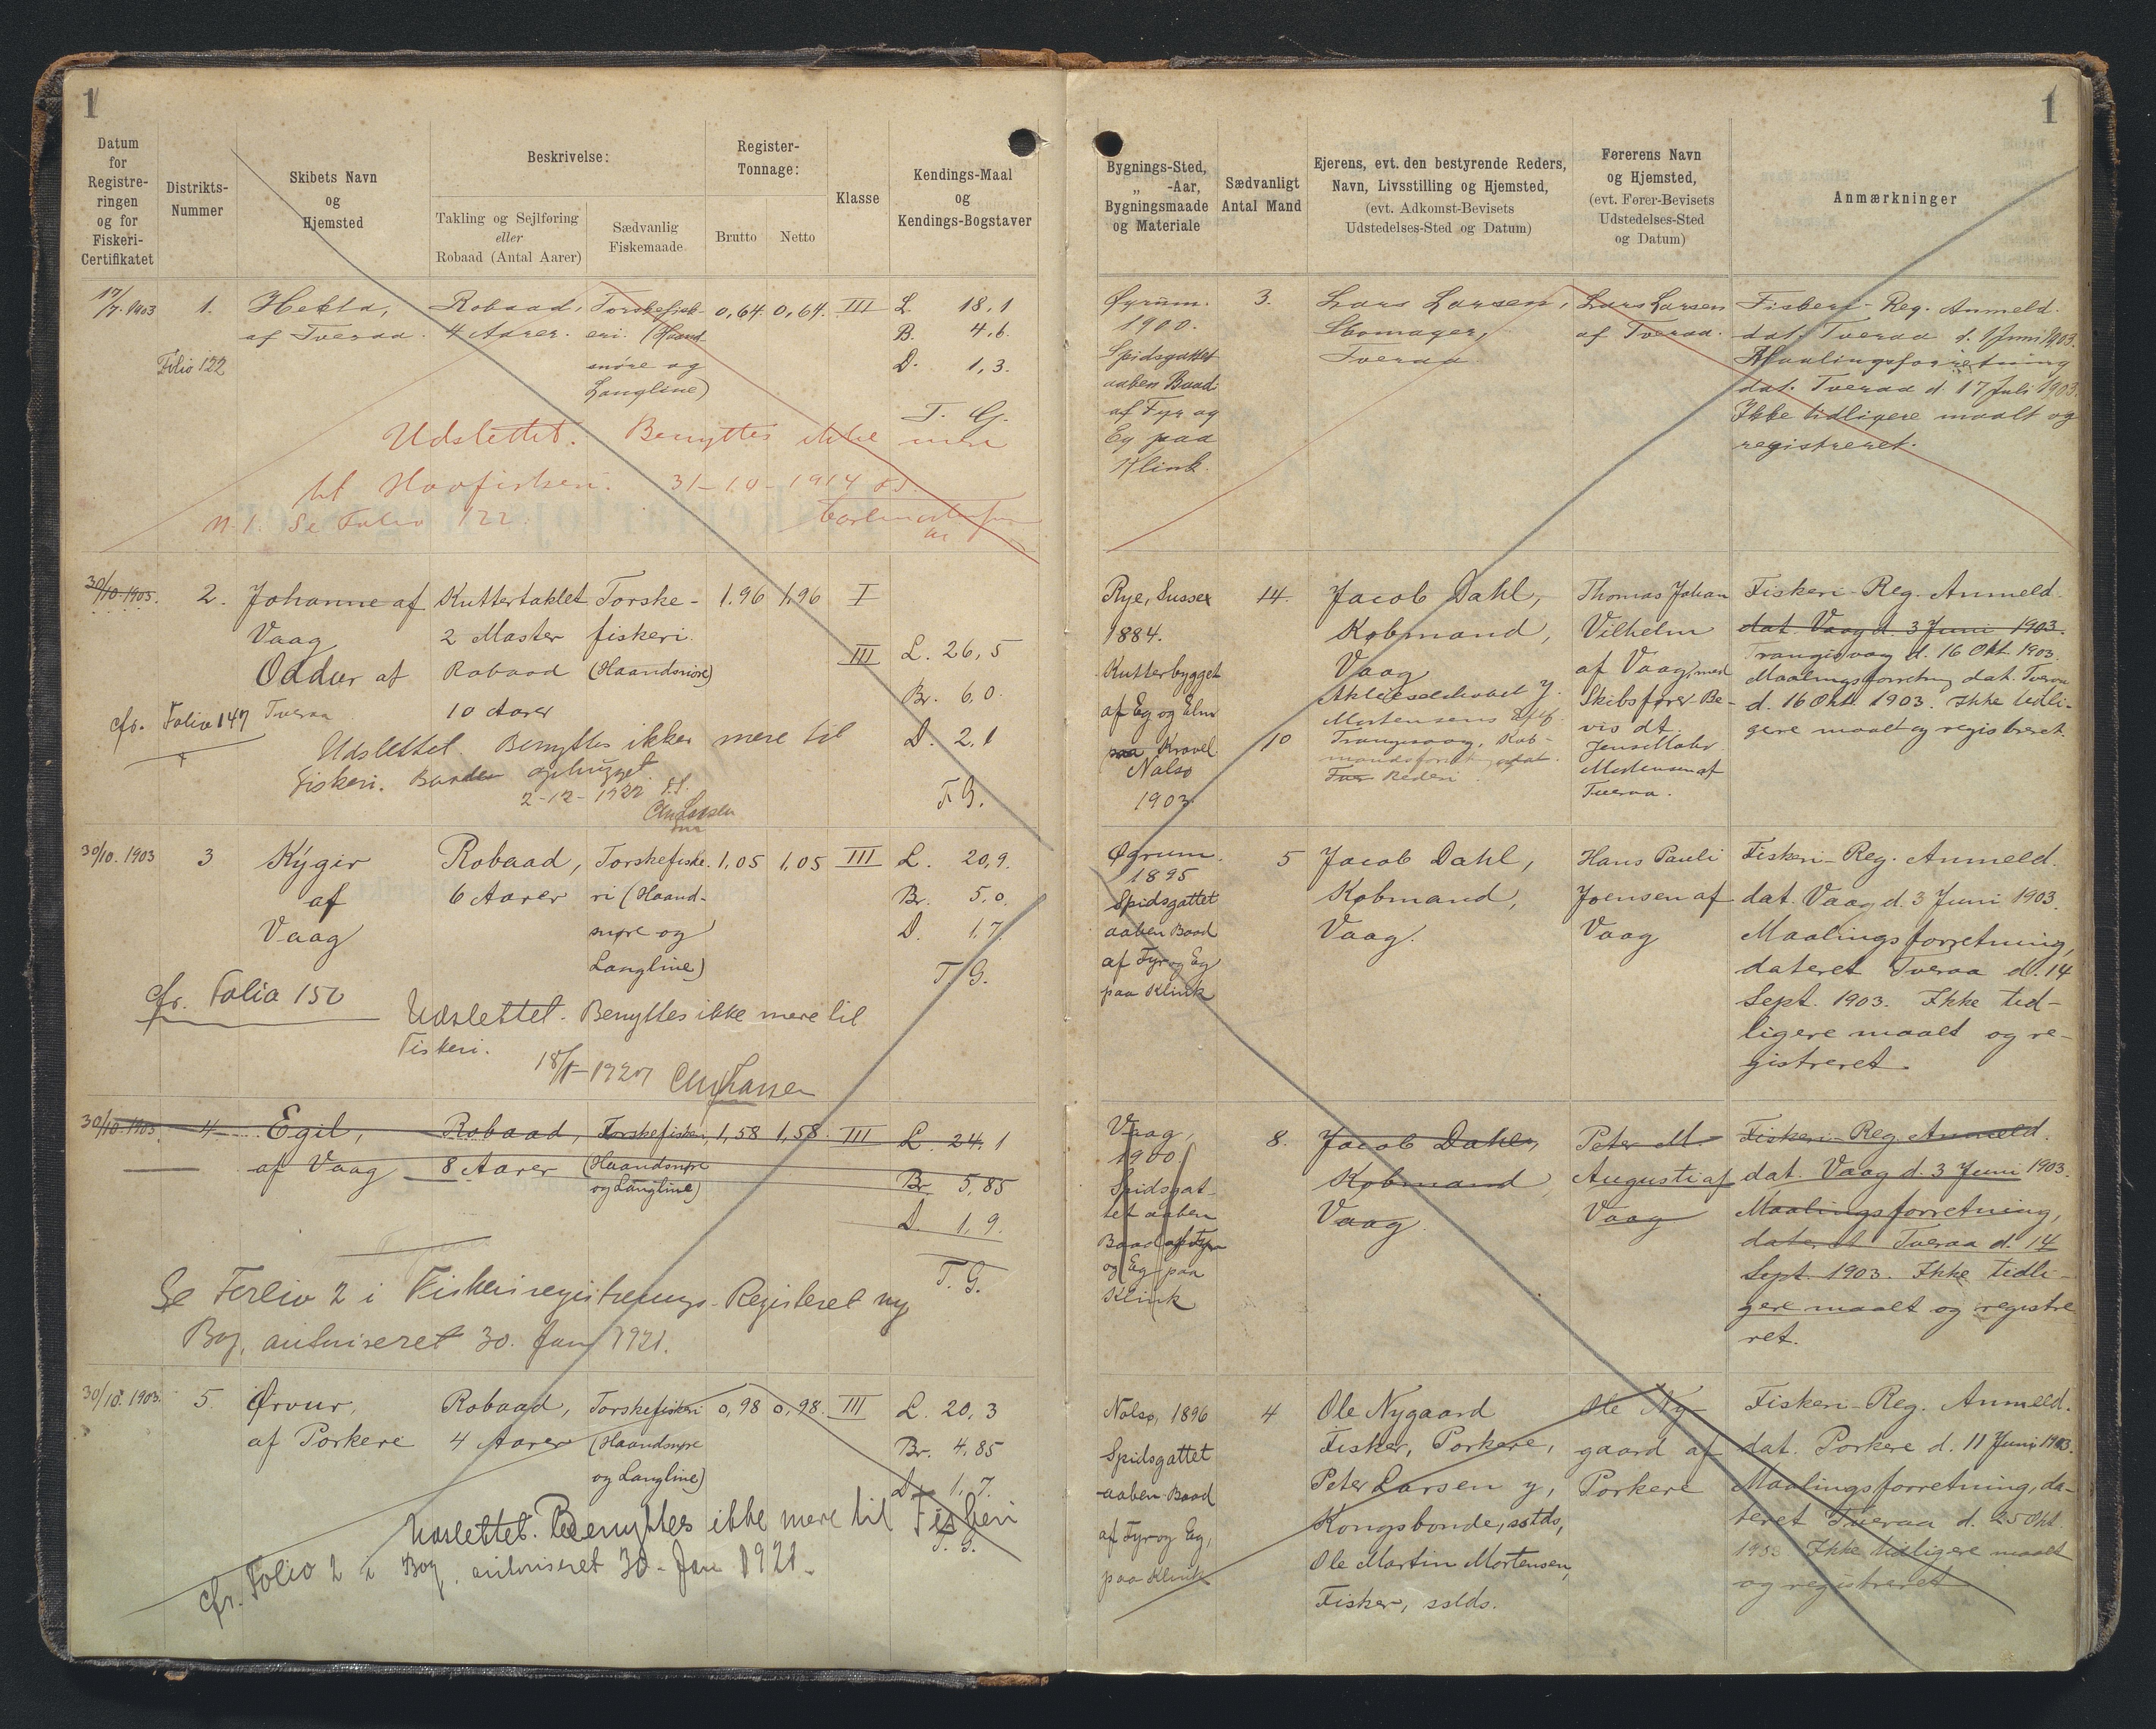 1
1
Datum
for
Registre-
ringen
og for
Fiskeri-
Certifikatet
Distrikts-
Nummer
Skibets Navn
og
Hjemsted
Beskrivelse:
Takling og Sejlføring
eller
Robaad (Antal Aarer)
Sædvanlig
Fiskemaade
Register-
Tonnage:
Brutto
Netto
Klasse
Kendings-Maal
og
Kendings-Bogstaver
Bygnings-Sted,
„ -Aar,
Bygningsmaade
og Materiale
Sædvanligt
Antal Mand
Ejerens, evt. den bestyrende Reders,
Navn, Livsstilling og Hjemsted,
(evt. Adkomst-Bevisets
Udstedelses-Sted og Datum)
Førerens Navn
og Hjemsted,
(evt. Fører-Bevisets
Udstedelses-Sted
og Datum)
Anmærkninger
17/7. 1903
1.
Hekla,
af Tveraa.
Folio 122
Robaad,
4 Aarer.
Torskefisk-
eri. (Haand
snöre og
Langline)
0,64.
0,64.
III
L. 18,1
B. 4,6
D. 1,3.
T. G.
Udslettet. Benyttes ikke mere
til Havfiskeri. 31-10-1914
N. 1. Se Folio 122.
Øyrum.
1900.
Spidsgattet
aaben Baad
af Fyr og
Eg paa
Klink.
3.
Lars Larsen,
Skomager,
Tveraa
Lars Larsen
af Tveraa.
Fiskeri-Reg. Anmeld.
dat. Tveraa d. 1 Juni 1903.
Maalingsforretning
dat. Tveraa d. 17 Juli 1903.
Ikke tidligere maalt og
registreret.
30/10. 1903.
2.
Johanne af
Vaag
Oddur af
Tveraa
cfr. Folio 147
Kuttertaklet
2 Master
Robaad
10 Aarer
Torske-
fiskeri.
(Haandsnöre)
1.96
1,96
I
III
L. 26,5
Br. 6,0.
D. 2,1
T. G.
Udslettet. Benyttes ikke mere til
Fiskeri. Baaden ophugget.
2-12-1922
Rye, Sussex
1884.
Kutterbygget
af Eg og Elm
paa Kravel
Nolsø
1903.
14.
10
Jacob Dahl,
Købmand,
Vaag
Aktieselskabet
Mortensens Eftf.
Trangisvaag,
Rederi
Thomas Johan
Vilhelm
af Vaag, med
Skibsfører-Be-
vis dt.
Mortensen af
Tveraa.
Fiskeri-Reg. Anmeld.
dat. Vaag d. 3 Juni 1903.
Trangisvaag d. 16 Okt. 1903
Maalingsforretning dat. Tveraa
d. 16 Okt. 1903. Ikke tidli-
gere maalt og registreret.
30/10. 1903
3
Kýgir
af
Vaag
cfr. Folio 150
Robaad,
6 Aarer
Torskefiske-
ri (Haand-
snøre og
Langline)
1,05
1,05
III
L. 20,9.
Br. 5,0.
D. 1,7.
T. G.
Udslettet. Benyttes ikke mere til
Fiskeri.
Øyrum.
1895
Spidsgattet
aaben Baad
af Fyr og Eg
paa Klink
5
Jacob Dahl,
Købmand,
Vaag.
Hans Pauli
Joensen af
Vaag
Fiskeri-Reg. Anmeld.
dat. Vaag d. 3 Juni 1903.
Maalingsforretning,
dateret Tveraa d. 14
Sept. 1903. Ikke tid-
ligere maalt og re-
gistreret.
30/10. 1903.
4
Egil,
af Vaag
Robaad,
8 Aarer
Torskefiskeri
(Haandsnøre
og Langline)
1,58
1,58.
III
L. 24,1
Br 5,85
D. 1,9.
T. G.
Se Folio 2 i Fiskeriregistrerings-Registeret ny
Bog, autoriseret 30. Jan 1921.
Vaag,
1900
Spidsgat-
tet aaben
Baad af Fyr
og Eg paa
Klink
8.
Jacob Dahl,
Købmand,
Vaag.
Peter M.
Augusti af
Vaag
Fiskeri-Reg. Anmeld.
dat. Vaag d. 3 Juni 1903.
Maalingsforretning,
dateret Tveraa d. 14
Sept. 1903. Ikke tidli-
gere maalt og registre
ret.
30/10. 1903.
5.
Ørvur,
af Porkere
Robaad,
4 Aarer
Torskefiskeri
(Haandsnøre
og Langline)
0,98
0,98.
III
L. 20,3
Br. 4,85
D. 1,7.
T. G.
Udslettet. Benyttes ikke mere til Fiskeri
cfr. Folio 2 i Bog, autoriseret 30. Jan 1921.
Nolsø, 1896
Spidsgattet
aaben Baad
af Fyr og Eg,
paa Klink
4
Ole Nygaard
Fisker, Porkere,
Peter Larsen y,
Kongsbonde, sstds,
Ole Martin Mortensen,
Fisker, sstds.
Ole Ny-
gaard af
Porkere
Fiskeri-Reg. Anmeld.
dat. Porkere d. 11 Juni 1903.
Maalingsforretning, da-
teret Tveraa d. 25 Okt.
1903 Ikke tidligere maalt
og registreret